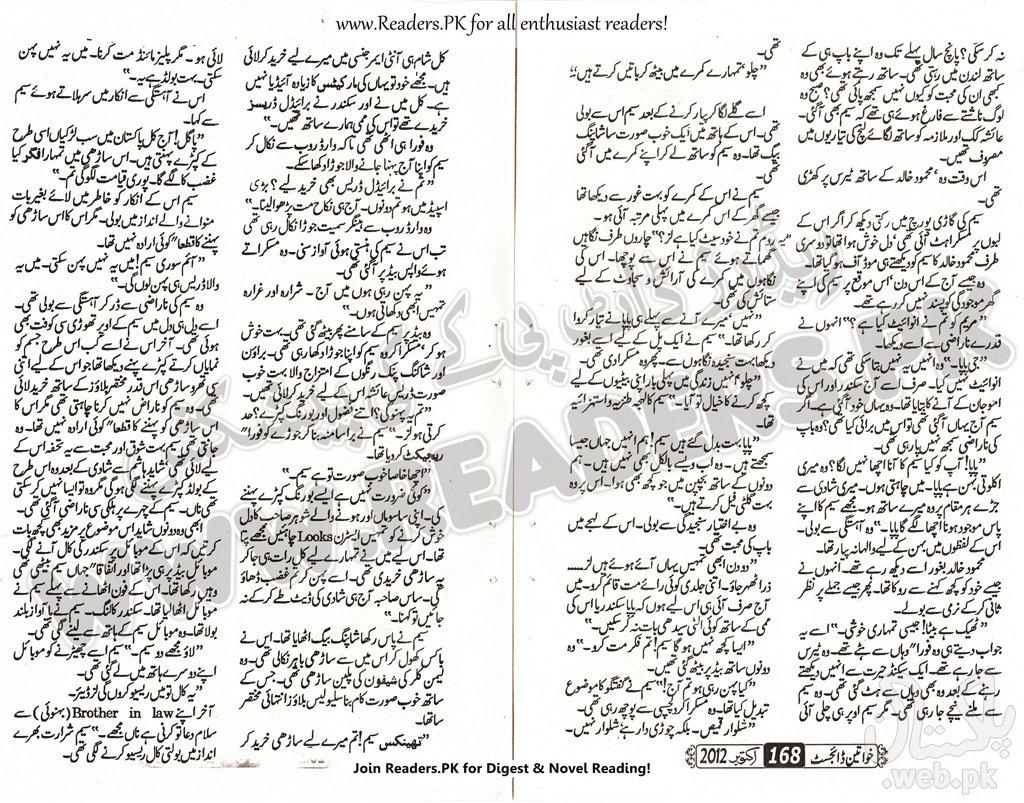 www.Readers.PK for all enthusiast readers!
نہ کر سکی؟ پانچ سال پہلے تک وہ اپنے باپ ہی کے
ساتھ لندن میں رہتی تھی۔ ساتھ رہتے ہوئے بھی وہ
کبھی ان کی محبت کو کیوں نہیں سمجھ پائی تھی؟ صبح وہ
لوگ ناشتے سے فارغ ہوئے ہی تھے کہ سیم بھی آگئی۔
عائشہ کک اور ملازمہ کو ساتھ لگائے لنچ کی تیاریوں میں
مصروف تھیں۔
اس وقت وہ محمود خالد کے ساتھ ٹیرس پر کھڑی
تھی۔
سیم کی گاڑی پورچ میں رکتی دیکھ کر اگر اس کے
لبوں پر مسکراہٹ آئی تھی، دل خوش ہوا تھا تو دوسری
طرف محمود خالد کا سیم کو دیکھتے ہی موڈ آف ہوگیا تھا۔
وہ جیسے آج کے اس دن، اس موقع پر سیم کی اپنے
گھر موجودگی کو پسند نہیں کر رہے تھے۔
"مریم کو تم نے انوائیٹ کیا ہے؟" انہوں نے
قدرے ناراضی سے اسے دیکھا۔
"جی پاپا۔" وہ انہیں یہ نہیں بتا سکی تھی کہ میں نے
انوائیٹ نہیں کیا۔ صرف اسے آج سکندر اور اس کی
اموجان کے آنے کا بتایا تھا۔ وہ یہاں خود آگئی ہے۔ اگر
سیم آج یہاں آگئی تھی تو اس میں برائی کیا تھی؟ وہ باپ
کی ناراضی سمجھ نہیں پا رہی تھی۔
"پاپا! آپ کو کیا سیم کا آنا اچھا نہیں لگا؟ وہ میری
اکلوتی بہن ہے پاپا۔ میں چاہتی ہوں۔ میری شادی سے
جڑے ہر مقام پر وہ میرے ساتھ ہو۔ مجھے سیم کا اپنے
پاس موجود ہونا اچھا لگے گا پاپا۔" وہ آہستگی سے بولی۔
اس کے لفظوں میں بہن کے لیے والہانہ پیار تھا۔
محمود خالد بغور اسے دیکھ رہے تھے۔ انہوں نے
جیسے خود کو کچھ کہنے سے روکا تھا۔ پھر جیسے جملے پر نظر
ثانی کر کے نرمی سے بولے۔
"ٹھیک ہے بیٹا! جیسی تمہاری خوشی۔" اسے یہ
جواب دیتے ہی وہ فوراً وہاں سے ہٹے تھے۔ وہ ٹیرس
سے جا رہے تھے۔ ایک سیکنڈ حیرت سے انہیں دیکھتے
رہنے کے بعد وہ بھی وہاں سے ہٹ گئی تھی۔ وہ سیم
سے ملنے نیچے جا رہی تھی۔ مگر سیم اوپر ہی چلی آئی
تھی۔
"چلو، تمہارے کمرے میں بیٹھ کر باتیں کرتے ہیں۔"
اسے گلے لگا کر پیار کرنے کے بعد سیم اس سے بولی
تھی۔ اس کے ہاتھ میں ایک خوب صورت سا شاپنگ
بیگ تھا۔ وہ سیم کو ساتھ لے کر اپنے کمرے میں آگئی
تھی۔
سیم نے اس کے کمرے کو بہت غور سے دیکھا تھا
جیسے گھر کے اس کمرے میں پہلی مرتبہ آئی ہو۔
"یہ روم تم نے خود سیٹ کیا ہے لز؟" چاروں طرف نگاہیں
گھماتے ہوئے سیم نے اس سے پوچھا۔ اس کی
نگاہوں میں کمرے کی آرائش و سجاوٹ کے لیے
ستائش تھی۔
"نہیں، میرے آنے سے پہلے ہی پاپا نے تیار کروا
کر رکھا تھا۔" سیم نے ایک پل کے لیے اسے بغور
دیکھا بہت سنجیدہ نگاہوں سے۔ پھر وہ مسکرا دی تھی۔
"چلو، انہیں زندگی میں پہلی بار اپنی بیٹیوں کے لیے
کچھ کرنے کا خیال تو آیا۔" سیم کا لہجہ طنزیہ و استہزائیہ
تھا۔
"پاپا بہت بدل گئے ہیں سیم! ہم انہیں جہاں جیسا
سمجھتے ہیں۔ وہ اب ویسے بالکل بھی نہیں ہیں۔ ہم
دونوں کے ساتھ بچپن میں جو کچھ بھی ہوا۔ اس پر وہ
بہت گلٹی فیل کرتے ہیں۔"
وہ بے اختیار سنجیدگی سے بولی۔ اس کے لہجے میں
باپ کی محبت تھی۔
"دو دن ابھی تمہیں یہاں آئے ہوئے ہیں لز۔۔۔۔
ذرا ٹھہر جاؤ۔ اتنی جلدی کوئی رائے مت قائم کرو۔ میں
آج صرف آئی ہی اس لیے ہوں کہ پاپا سکندر یا اس کی
ممی کے ساتھ کوئی الٹی سیدھی بات نہ کر سکیں۔"
"ایسا کچھ نہیں ہوگا سیم! تم فکر مت کرو۔" وہ
دونوں ساتھ بیڈ پر بیٹھ گئی تھیں۔
"کیا پہن رہی ہو تم آج؟" سیم نے گفتگو کا موضوع
تبدیل کیا تھا۔ وہ مسکرا کر دلچسپی سے پوچھ رہی تھی۔
"شلوار قمیص۔ بلکہ چوڑی دار ہے، شلوار نہیں۔
کل شام ہی آنٹی ایمرجنسی میں میرے لیے خرید کر لائی
ہیں۔ مجھے خود تو یہاں کی مارکیٹس کا زیادہ آئیڈیا نہیں
ہے۔ کل میں نے اور سکندر نے برائیڈل ڈریسز
خریدے تھے تو اس کی ممی ہمارے ساتھ تھیں۔"
وہ فوراً ہی اٹھی تھی تاکہ وارڈ روب سے نکال کر
سیم کو اپنا آج پہنا جانے والا جوڑا دکھا سکے۔
"تم نے برائیڈل ڈریس بھی خرید لیے؟ بڑی
اسپیڈ میں ہو تم دونوں۔ آج ہی نکاح مت پڑھوا لینا۔"
وہ وارڈ روب سے ہینگر سمیت جوڑا نکال رہی تھی
تب اس نے سیم کی ہنستی ہوئی آواز سنی۔ وہ مسکراتے
ہوئے واپس بیڈ پر آگئی تھی۔
"یہ پہن رہی ہوں میں آج۔ شرارہ اور غرارہ
تمہیں ابھی دکھاتی ہوں۔"
وہ بیڈ پر سیم کے سامنے پھر بیٹھ گئی تھی۔ بہت خوش
ہو کر، مسکرا کر وہ سیم کو اپنا جوڑا دکھا رہی تھی۔ براؤن
اور شاکنگ پنک رنگوں کے امتزاج والا بہت خوب
صورت ڈریس عائشہ اس کے لیے خرید کر لائی تھیں۔
"تم یہ پہنو گی؟ اتنے فضول اور بورنگ کپڑے؟ حد
کرتی ہو لز۔" سیم نے برا سا منہ بنا کر جوڑے کو فوراً
ریجیکٹ کر دیا تھا۔
"اچھا خاصا خوب صورت تو ہے سیم۔"
"کوئی ضرورت نہیں ہے ایسے بورنگ کپڑے پہننے
کی۔ اپنی ساسوماں اور ہونے والے شوہر صاحب کا دل
خوش کرنے کو تمہیں ایسٹرن Looks چاہئیں مجھے پتا
تھا۔ اس لیے میں نے تمہارے لیے کل رات ہی جا کر
یہ ساڑھی خریدی تھی۔ اسے پہن کر تم غضب ڈھاؤ
گی۔ ساس صاحبہ آج ہی شادی کی ڈیٹ طے کر کے نہ
جائیں تو کہنا۔"
سیم نے پاس رکھا شاپنگ بیگ اٹھایا تھا۔ اس نے
باکس کھول کر اس میں سے ساڑھی باہر نکالی تھی۔ وہ
لیمن کلر کی شیفون کی پلین ساڑھی تھی۔ جس کے
ساتھ خوب صورت کام بنا سلیولیس بلاؤز انتہائی مختصر
سا تھا۔
"تھینکس سیم! تم میرے لیے ساڑھی خرید کر
لائی ہو۔ مگر پلیز مائنڈ مت کرنا۔ میں یہ نہیں پہن
سکتی۔ بہت بولڈ ہے یہ۔"
اس نے آہستگی سے انکار میں سر ہلاتے ہوئے سیم
سے کہا۔
"پاگل! آج کل پاکستان میں سب لڑکیاں اسی طرح
کے کپڑے پہنتی ہیں۔ اس ساڑھی میں تمہارا فگر کیا
غضب کا لگے گا۔ پوری قیامت لگو گی تم۔"
سیم اس کے انکار کو خاطر میں لائے بغیر بات
منوانے والے انداز میں بولی۔ مگر اس کا اس ساڑھی کو
پہننے کا قطعاً کوئی ارادہ نہیں تھا۔
"آئم سوری سیم! میں یہ نہیں پہن سکتی۔ میں یہ
والا ڈریس ہی پہن لوں گی۔"
وہ سیم کی ناراضی سے ڈر کر آہستگی سے بولی تھی۔
اسے دل ہی دل میں سیم کے اوپر تھوڑی سی کوفت بھی
ہوئی تھی۔ آخر اس نے اسے کب اس طرح جسم کو
نمایاں کرتے کپڑے پہنے دیکھا تھا جو اس کے لیے اتنی
سی تھرو ساڑھی اس قدر مختصر بلاؤز کے ساتھ خرید لائی
تھی۔ وہ سیم کو ناراض نہیں کرنا چاہتی تھی مگر اس کا
اس ساڑھی کو پہننے کا قطعاً کوئی ارادہ نہیں تھا۔ وہ
جانتی تھی سیم بہت شوق اور محبت سے یہ تحفہ اس کے
لیے لائی تھی، شاید ہاشم سے شادی کے بعد وہ اس طرح
کے بولڈ کپڑے پہننے لگی ہو گی مگر وہ تو ایسا نہیں کر سکتی
تھی ناں۔ سیم کے چہرے پر ہلکی سی ناراضی آگئی تھی۔
ابھی وہ دونوں شاید اس موضوع پر مزید بھی کچھ بات
کرتیں کہ اس کے موبائل پر سکندر کی کال آنے لگی۔
موبائل بیڈ پر ہی پڑا تھا اور اتفاقاً جہاں سیم بیٹھی تھی
وہیں رکھا تھا۔ اس کے فون اٹھانے سے پہلے سیم نے
موبائل اٹھا لیا تھا۔ سکندر کالنگ۔ سیم نے با آواز بلند
بولا تھا۔ وہ موبائل سیم کے ہاتھ سے لینے لگی تھی۔
"لاؤ مجھے دو سیم۔" سیم اسے چھیڑنے کو موبائل
اپنے دوسرے ہاتھ میں لے گئی تھی۔
"یہ کال تو میں ریسیو کروں گی لز ڈیئر۔
آخر اپنے Brother in law (بہنوئی) سے
سلام دعا تو کرنی ہے ناں مجھے۔" سیم شرارت بھرے
انداز میں بولتی کال ریسیو کرنے لگی تھی۔
خواتین ڈائجسٹ 168 اکتوبر 2012
Join Readers.PK for Digest & Novel Reading!
WWW.READERS.PK
پاکستان
.web.pk